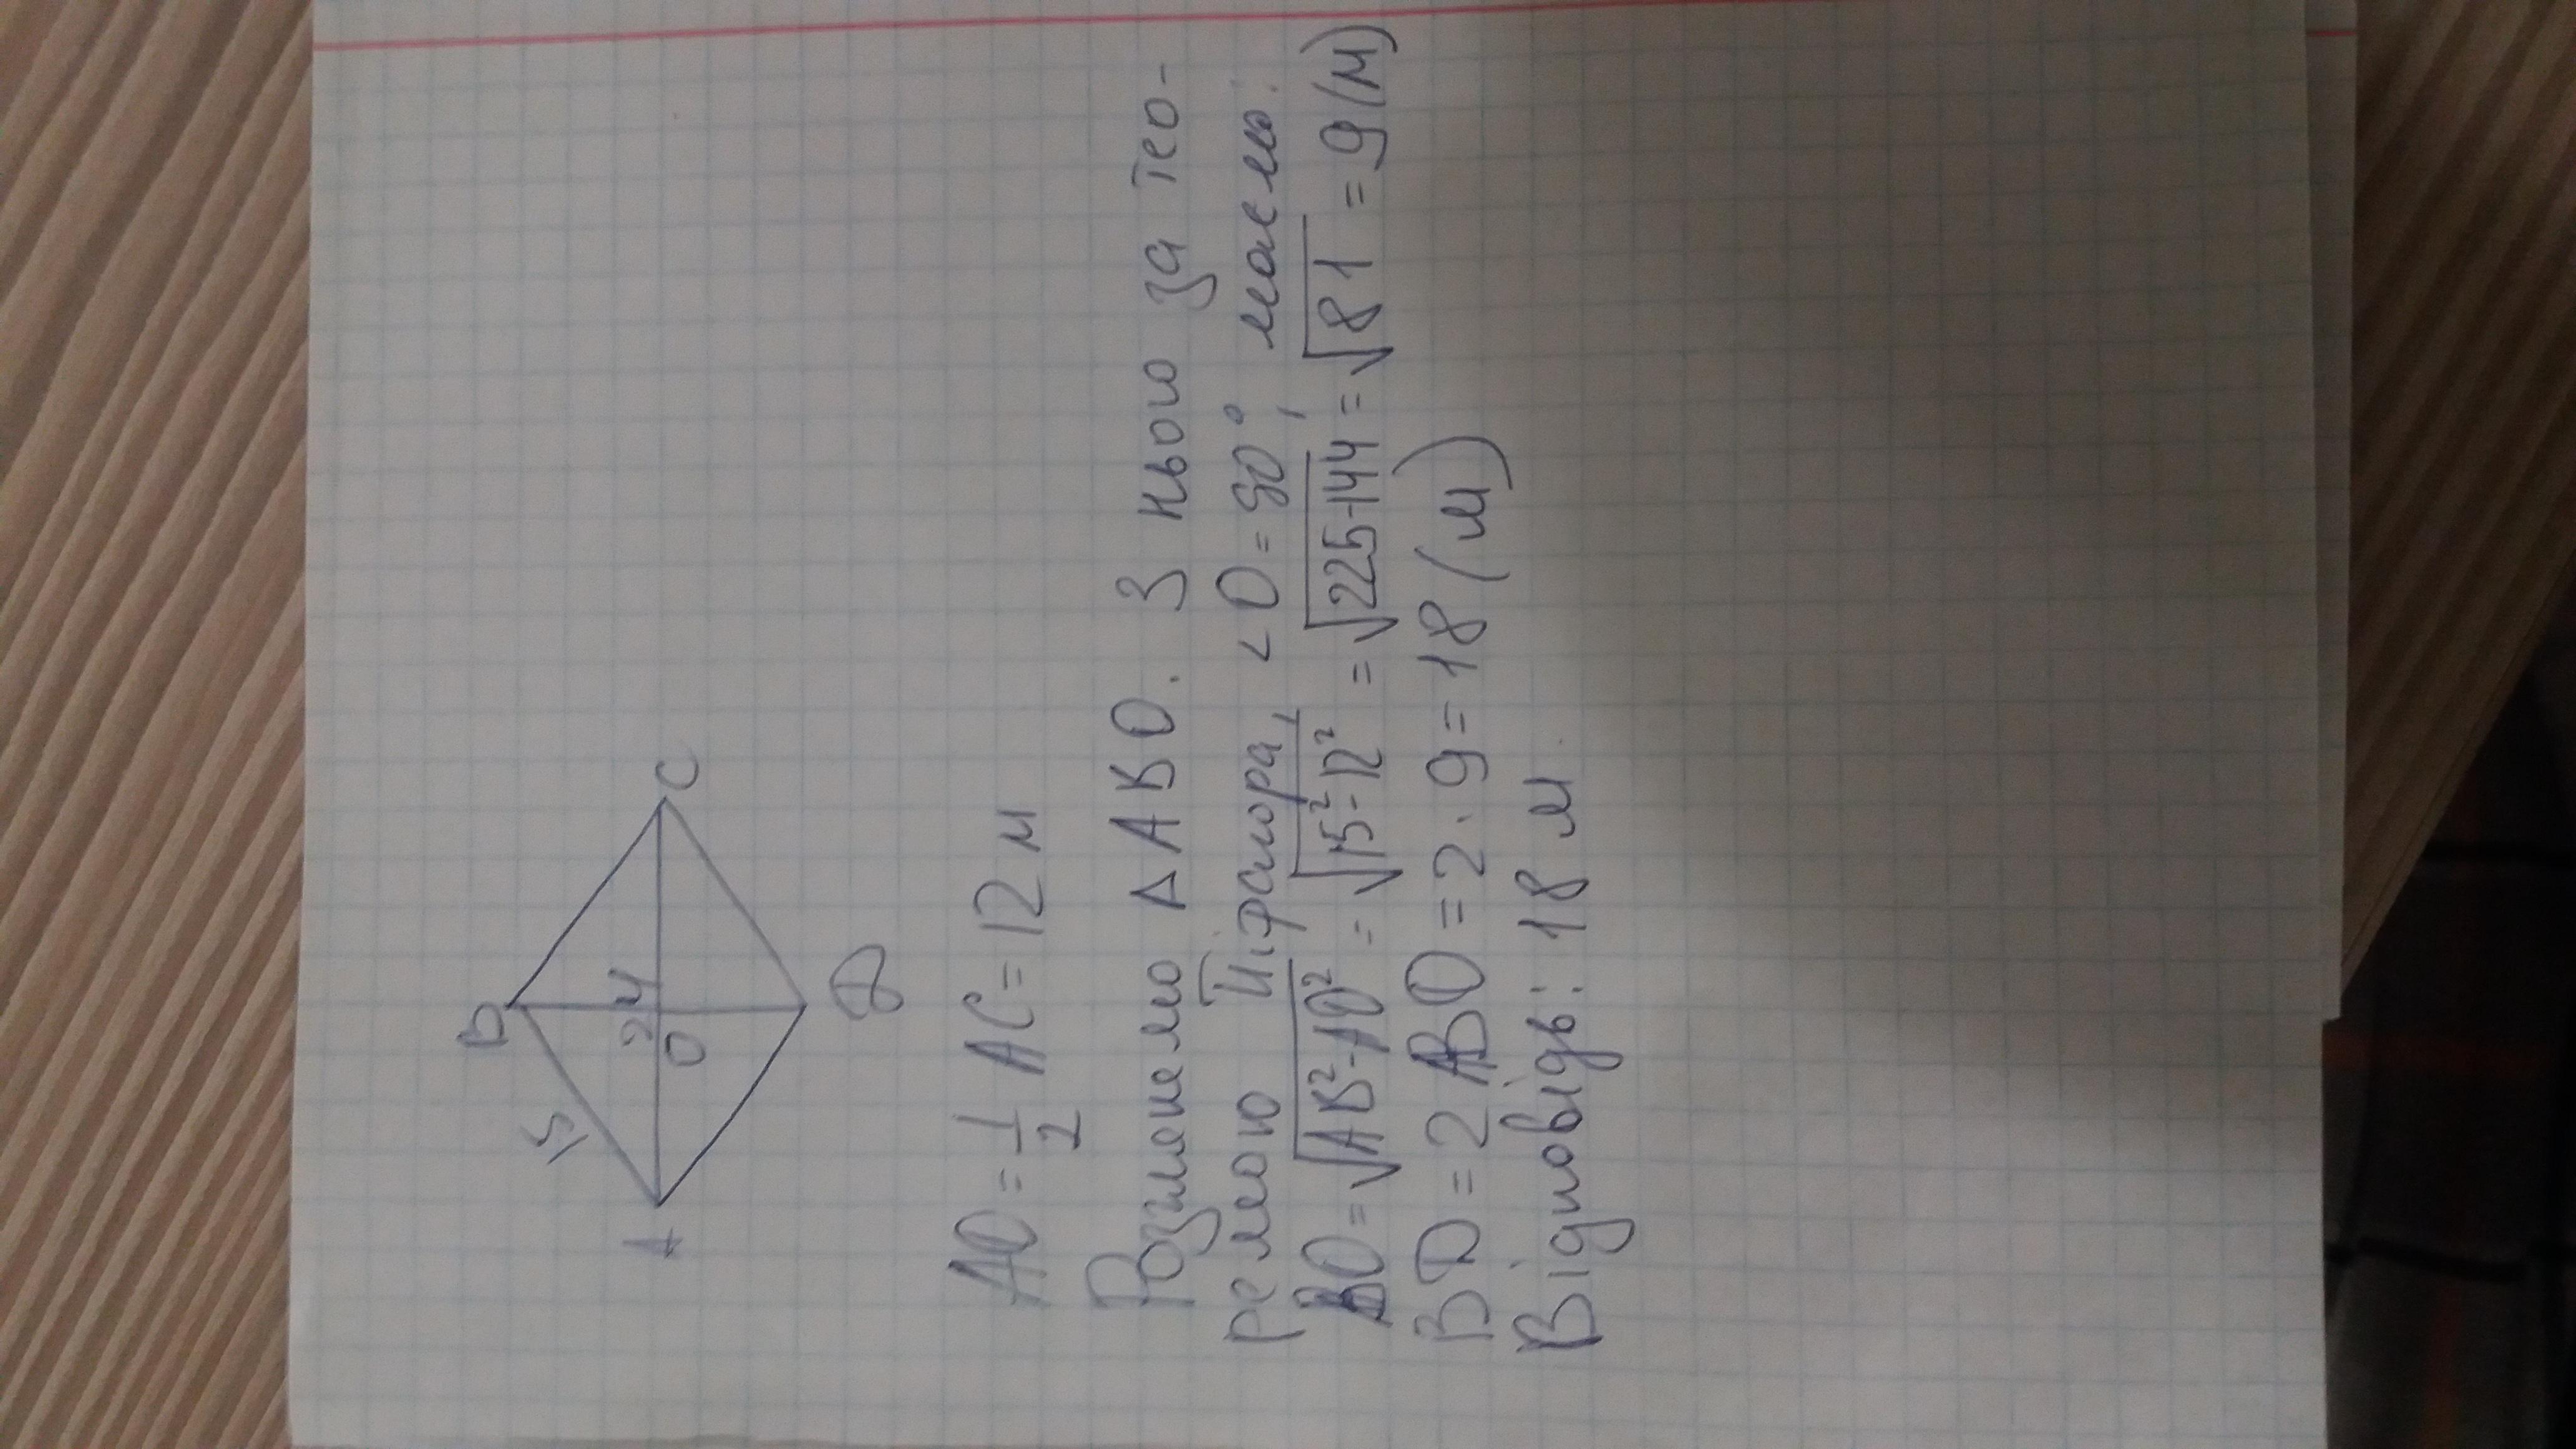 B
15
24
A
O
C
D
AO = 1/2 AC = 12 м
Розглянемо Δ ABO. З нього за тео-
ремою Піфагора, ∠O=90°, маємо:
BO = √AB²-AO² = √15²-12² = √225-144 = √81 = 9(м)
BD = 2 BO = 2·9 = 18 (м)
Відповідь: 18 м.